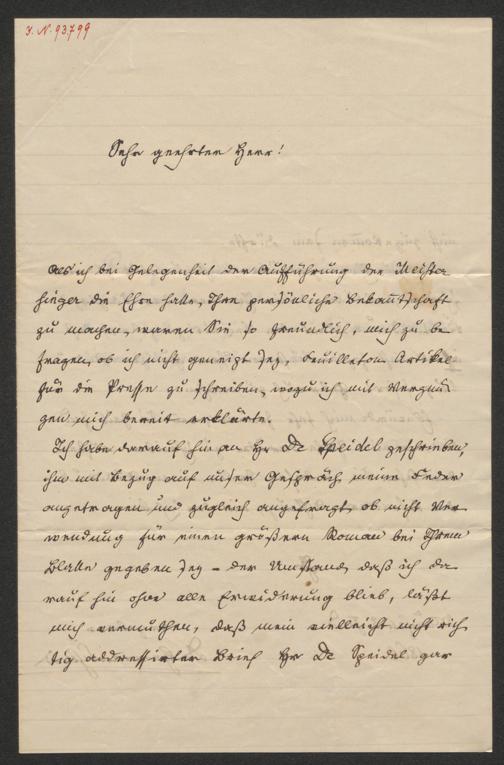 I. N. 93.799
Sehr geehrter Herr!
Als ich bei Gelegenheit der Aufführung der Meister
singer die Ehre hatte, Ihre persönliche Bekanntschaft
zu machen, waren Sie so freundlich, mich zu be
fragen, ob ich nicht geneigt sey, Feuilleton Artikel
für die Presse zu schreiben, wozu ich mit Vergnü
gen mich bereit erklärte.
Ich habe darauf hin an Hr Dr Speidel geschrieben,
ihm mit Bezug auf unser Gespräch meine Feder
angetragen und zugleich angefragt, ob nicht Ver
wendung für einen größern Roman bei Ihrem
Blatte gegeben sey – der Umstand, daß ich da
rauf hin ohne alle Erwiderung blieb, läßt
mich vermuthen, daß mein vielleicht nicht rich
tig addressirter Brief Hr Dr Speidel gar